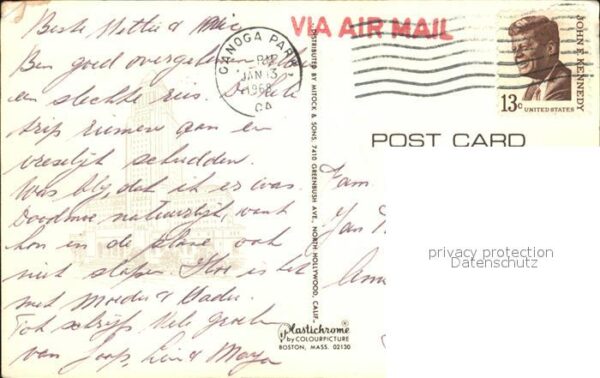 Beste Nellie & Wie
Ben goed overgekomen. Wel
een slechte reis. De hele
trip riemen aan en
vreselijk schudden.
Was blij, dat ik er was.
Doodmoe natuurlijk, want
kon in de plane ook
niet slapen. Hoe is het
met Moeder & Vader.
Tot schrijfs Vele groeten
van Joop, Lin & Maya
CANOGA PARK
PM
JAN 13
1968
CA
VIA AIR MAIL
JOHN F. KENNEDY
13c
UNITED STATES
POST CARD
DISTRIBUTED BY MITOCK & SONS, 7410 GREENBUSH AVE., NORTH HOLLYWOOD, CALIF.
Fam
Jan
privacy protection
Datenschutz
Plastichrome®
by COLOURPICTURE
BOSTON, MASS. 02130